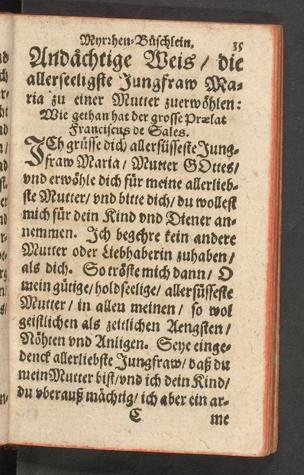 Myrrhen-Büschlein. 35
Andächtige Weis / die
allerseeligste Jungfraw Ma-
ria zu einer Mutter zuerwöhlen:
Wie gethan hat der grosse Prælat
Franciscus de Sales.
ICh grüsse dich allersüsseste Jung-
fraw Maria / Mutter GOttes /
vnd erwöhle dich für meine allerlieb-
ste Mutter / vnd bitte dich / du wollest
mich für dein Kind vnd Diener an-
nemmen. Ich begehre kein andere
Mutter oder Liebhaberin zuhaben /
als dich. So tröste mich dann / O
mein gütige / holdseelige / allersüsseste
Mutter / in allen meinen / so wol
geistlichen als zeitlichen Aengsten /
Nöhten vnd Anligen. Seye einge-
denck allerliebste Jungfraw / daß du
mein Mutter bist / vnd ich dein Kind /
du vberauß mächtig / ich aber ein ar-
C me